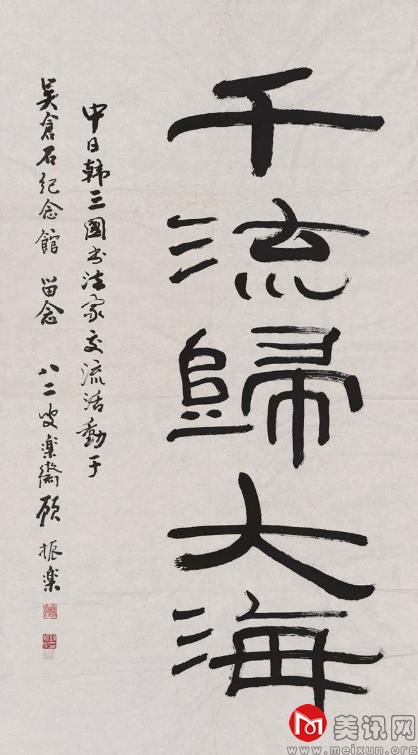 千流歸大海
中日韩三國书法家交流活動于
吴倉石纪念館 留念 八二叟樂斋顾振楽
美讯网
www.meixun.org